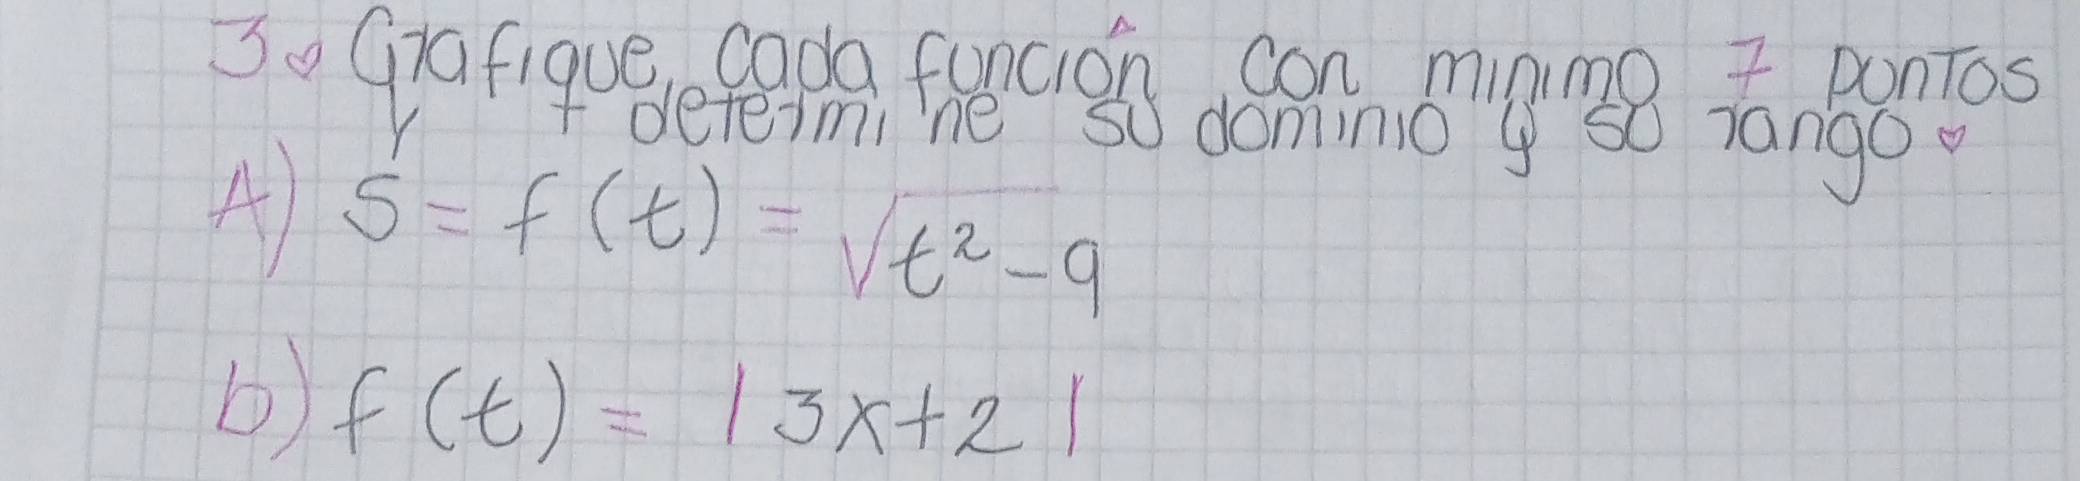 3. Grafique cada función con minimo 7 puntos
y determine su dominio y su rango.
A) S = f(t) = √t² - 9
b) f(t) = |3x+2|